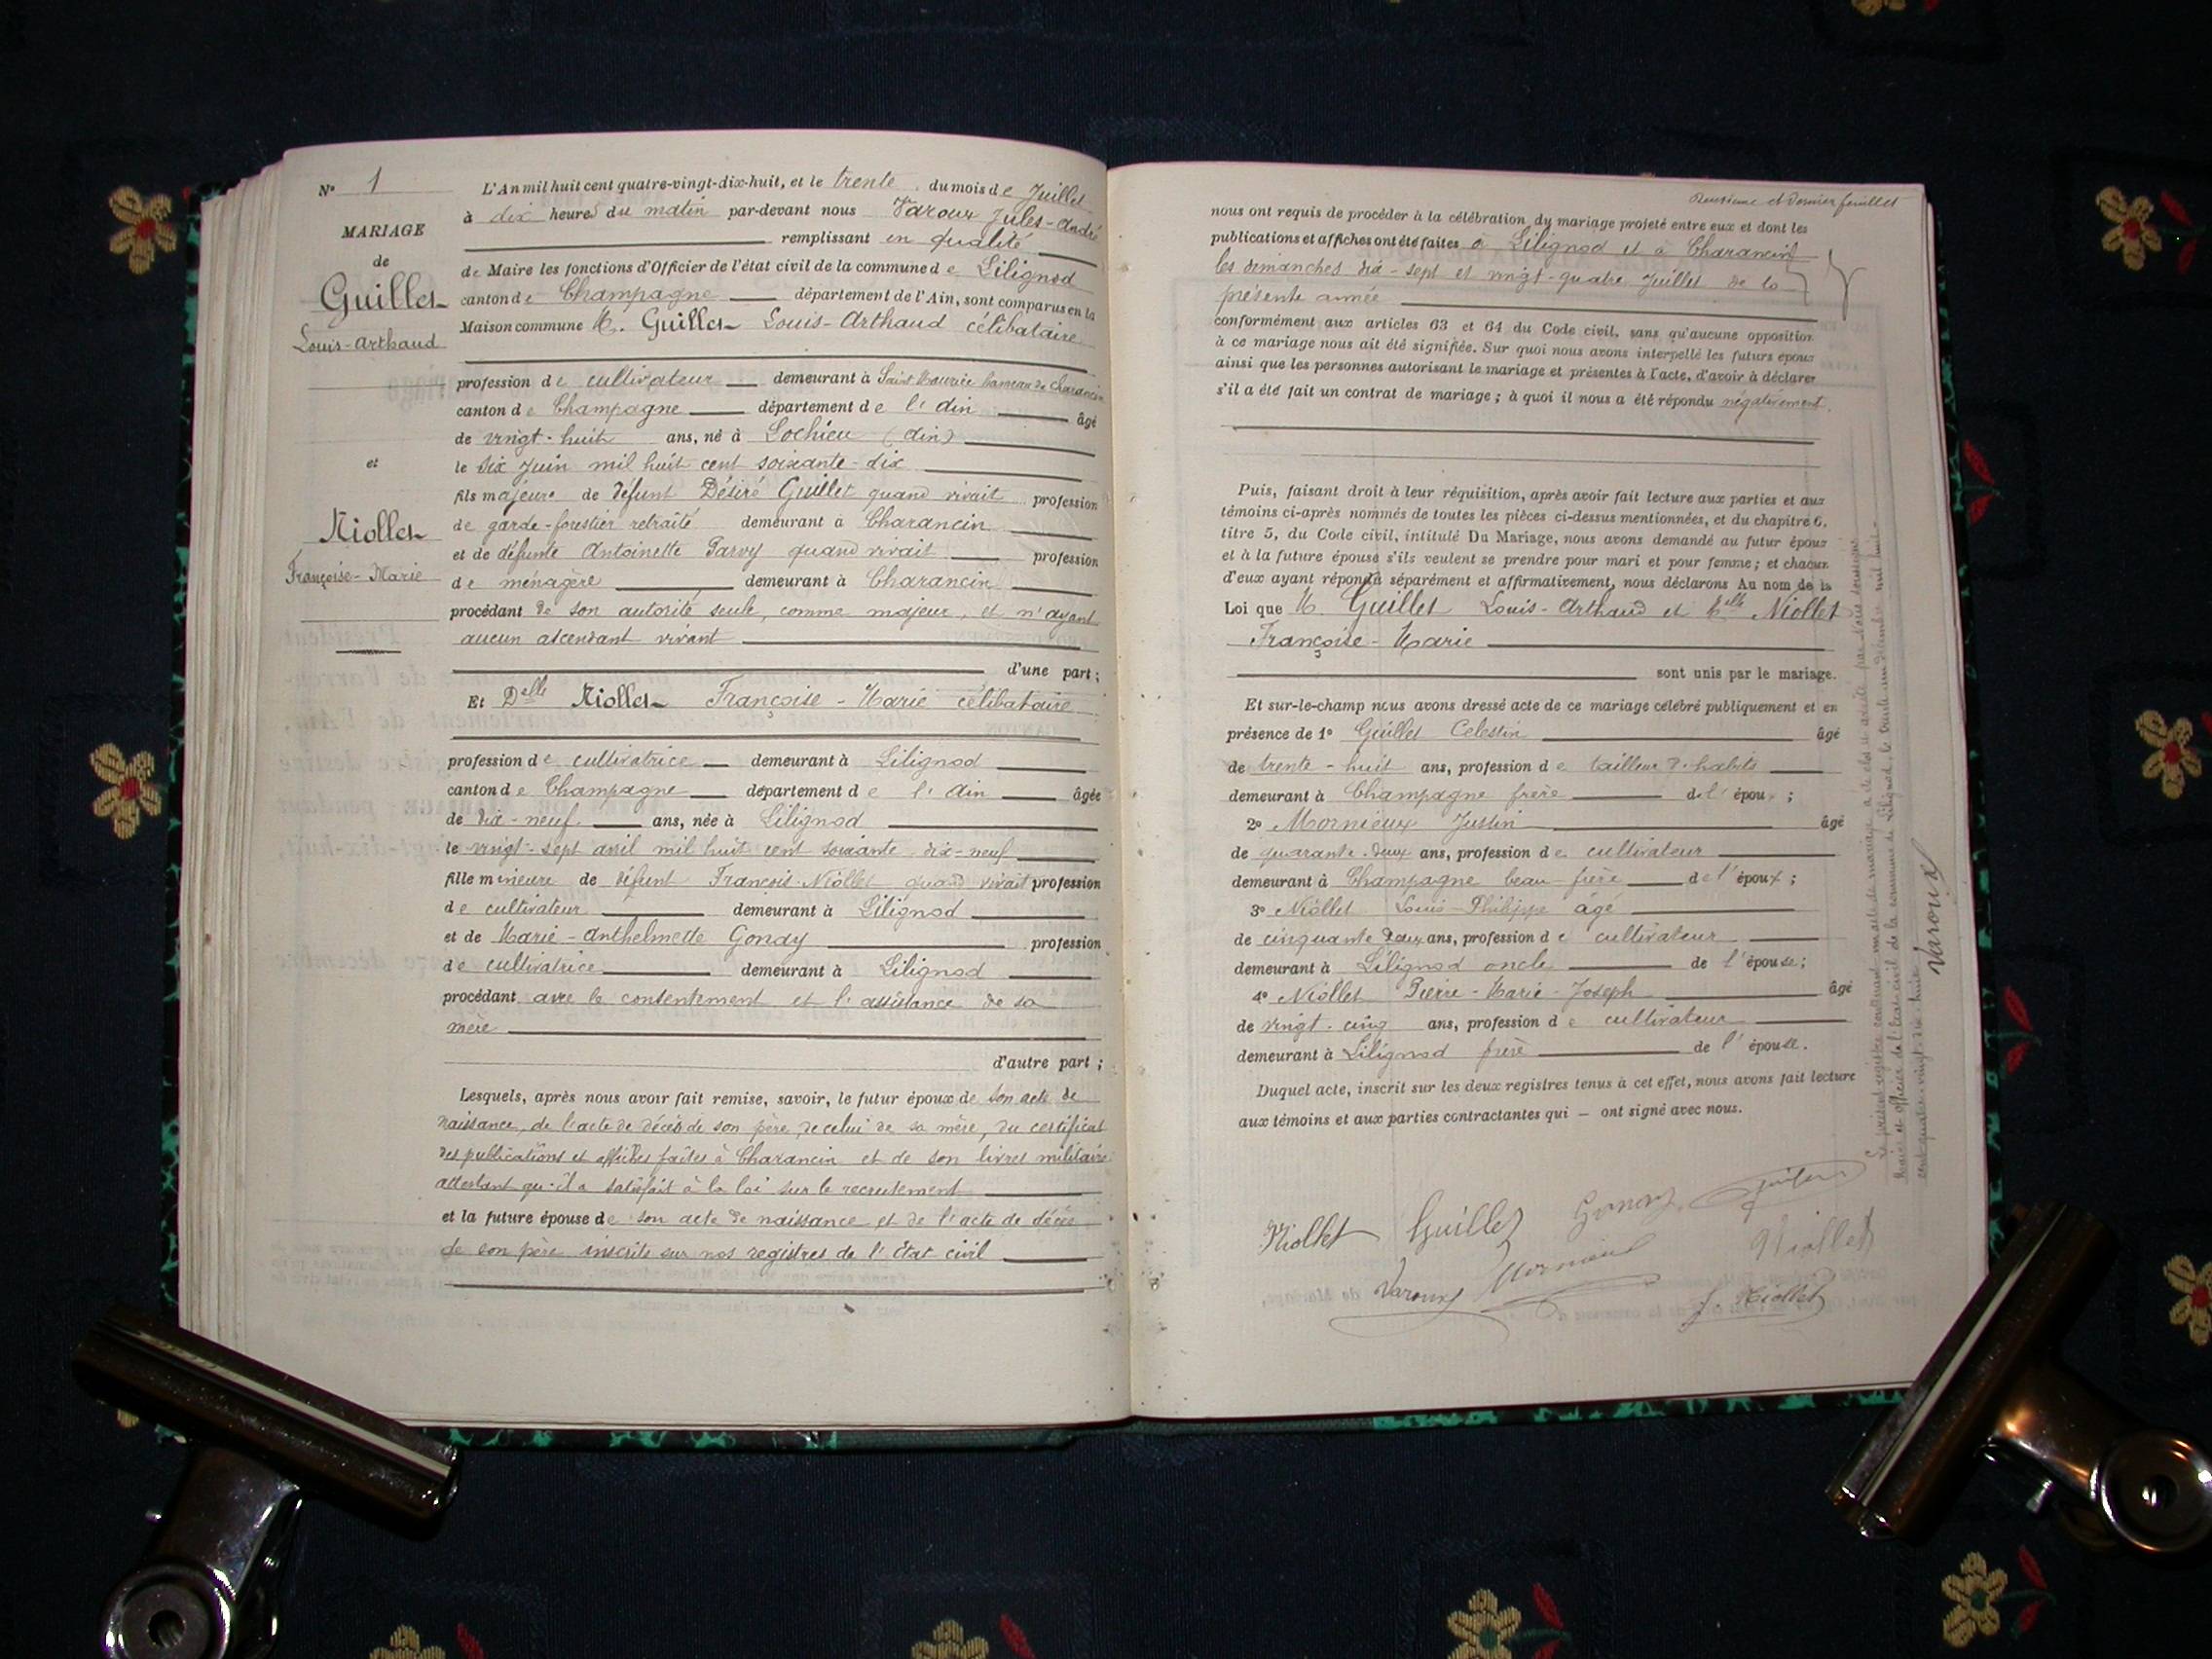 N° 1
MARIAGE
de
Guillet
Louis-Arthaud
et
Niollet
Françoise-Marie
L'An mil huit cent quatre-vingt-dix-huit, et le trente du mois de Juillet
à dix heures du matin par-devant nous Varoux Jules-André
remplissant en qualité
de Maire les fonctions d'Officier de l'état civil de la commune de Lilignod
canton de Champagne département de l'Ain, sont comparus en la
Maison commune M. Guillet Louis-Arthaud célibataire
profession de cultivateur demeurant à Saint Maurice hameau de Charancin
canton de Champagne département de l'Ain âgé
de vingt-huit ans, né à Lochieu (Ain)
le six Juin mil huit cent soixante-dix
fils majeure de défunt Désiré Guillet quand vivait profession
de garde-forestier retraité demeurant à Charancin
et de défunte Antoinette Parvy quand vivait profession
de ménagère demeurant à Charancin
procédant de son autorité seule, comme majeur, et n'ayant
aucun ascendant vivant
d'une part ;
Et Delle Niollet Françoise-Marie célibataire
profession de cultivatrice demeurant à Lilignod
canton de Champagne département de l'Ain âgée
de dix-neuf ans, née à Lilignod
le vingt-sept avril mil huit cent soixante dix-neuf
fille mineure de défunt François Niollet quand vivait profession
de cultivateur demeurant à Lilignod
et de Marie-Anthelmette Gonay profession
de cultivatrice demeurant à Lilignod
procédant avec le consentement et l'assistance de sa
mère
d'autre part ;
Lesquels, après nous avoir fait remise, savoir, le futur époux de son acte de
naissance, de l'acte de décès de son père, de celui de sa mère, du certificat
des publications et affiches faites à Charancin et de son livret militaire
attestant qu'il a satisfait à la loi sur le recrutement
et la future épouse de son acte de naissance et de l'acte de décès
de son père inscrits sur nos registres de l'Etat civil
Deuxième et dernier feuillet
nous ont requis de procéder à la célébration du mariage projeté entre eux et dont les
publications et affiches ont été faites à Lilignod et à Charancin
les dimanches dix-sept et vingt-quatre Juillet de la
présente année
conformément aux articles 63 et 64 du Code civil, sans qu'aucune opposition
à ce mariage nous ait été signifiée. Sur quoi nous avons interpellé les futurs époux
ainsi que les personnes autorisant le mariage et présentes à l'acte, d'avoir à déclarer
s'il a été fait un contrat de mariage ; à quoi il nous a été répondu négativement.
Puis, faisant droit à leur réquisition, après avoir fait lecture aux parties et aux
témoins ci-après nommés de toutes les pièces ci-dessus mentionnées, et du chapitre 6,
titre 5, du Code civil, intitulé Du Mariage, nous avons demandé au futur époux
et à la future épouse s'ils veulent se prendre pour mari et pour femme ; et chacun
d'eux ayant répondu séparément et affirmativement, nous déclarons Au nom de la
Loi que M. Guillet Louis-Arthaud et Melle Niollet
Françoise-Marie
sont unis par le mariage.
Et sur-le-champ nous avons dressé acte de ce mariage célébré publiquement et en
présence de 1° Guillet Celestin âgé
de trente-huit ans, profession de tailleur d'habits
demeurant à Champagne frère de l'époux ;
2° Mornieux Justin âgé
de quarante-deux ans, profession de cultivateur
demeurant à Champagne beau-frère de l'époux ;
3° Niollet Louis-Philippe âgé
de cinquante deux ans, profession de cultivateur
demeurant à Lilignod oncle de l'épouse ;
4° Niollet Pierre-Marie-Joseph âgé
de vingt-cinq ans, profession de cultivateur
demeurant à Lilignod frère de l'épouse.
Duquel acte, inscrit sur les deux registres tenus à cet effet, nous avons fait lecture
aux témoins et aux parties contractantes qui — ont signé avec nous.
Niollet Guillet Gonay Guillet
Varoux Mornieux Niollet
J. Niollet
Le présent registre contenant un acte de mariage a été clos et arrêté par Nous soussigné
Maire et officier de l'état civil de la commune de Lilignod le trente un décembre mil huit
cent quatre vingt dix huit
Varoux